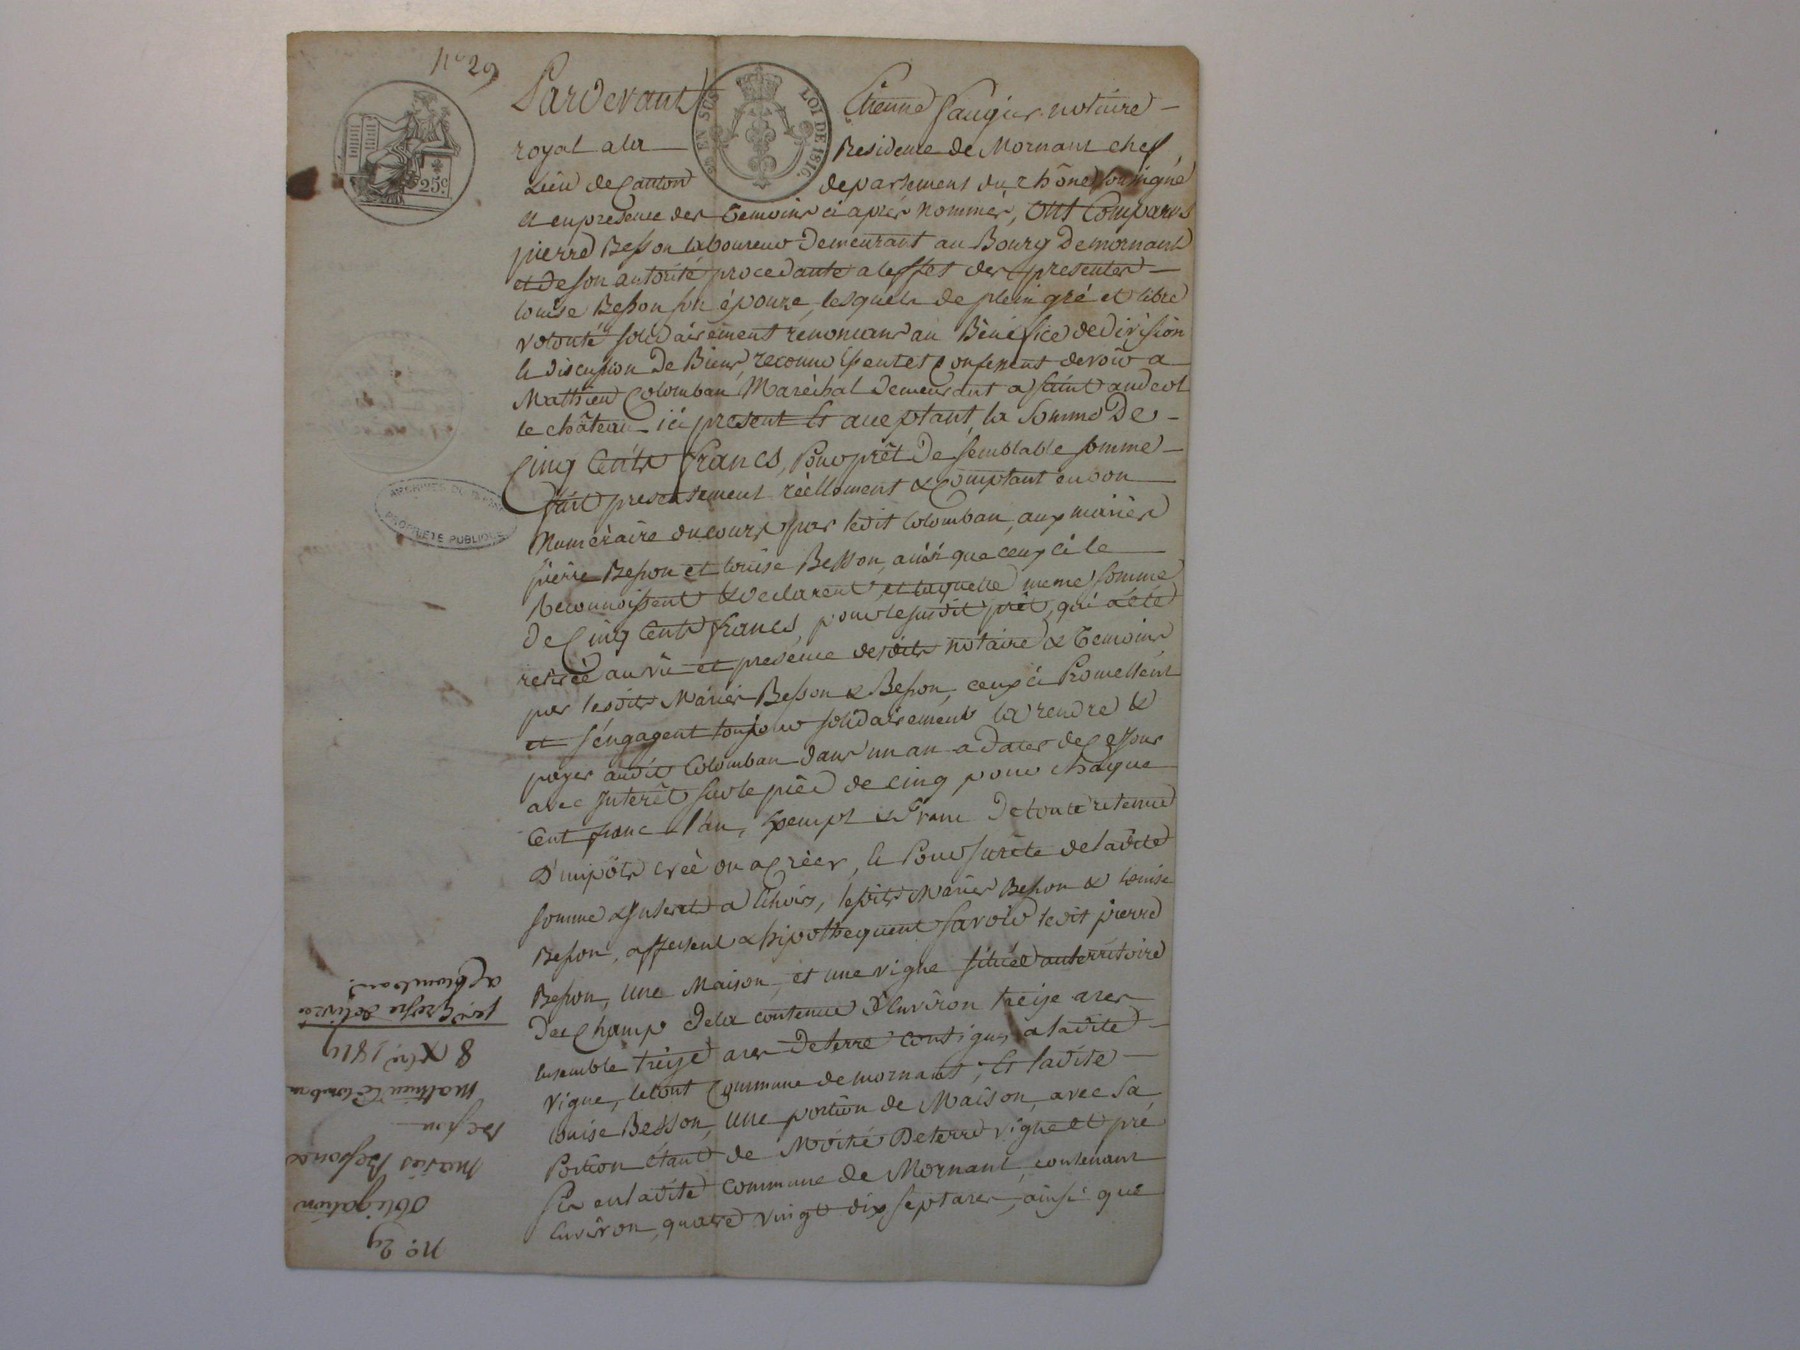 N° 29
25c
EN SUS LOI DE 1816.
Pardevant Etienne Faugier notaire
royal a la Residence de Mornant chef
Lieu de Canton departement du Rhône soussigné
et en presence des Temoins ci après nommés, Ont Comparus
pierre Besson laboureur demeurant au Bourg de mornant
et de son autorité procedante a leffet des presentes
Louise Besson son épouze, lesquels de plein gré et libre
volonté solidairement renoncans au Bénéfice de Division
& discussion De Biens, reconnoissent et Confessent devoir a
Mathieu Colomban Maréchal Demeurant a Saint andeol
le château ici present et acceptant, la somme De
Cinq Cents francs, Pour prêt De semblable somme
fait presentement réellement & Comptant en bon
Numéraire du cours par ledit Colomban, aux mariés
pierre Besson et Louise Besson, ainsi que ceux ci le
Reconnoissent & declarent, et laquelle meme somme
De Cinq Cents francs, pour le susdit prêt, qui a été
retirée au vû et presence desdits notaire & Temoins
par lesdits Mariés Besson & Besson, ceux ci Promettent
et s'engagent toujour solidairement la rendre &
payer audit Colomban dans un an a Dater de Ce jour
avec Interêt sur le pied de Cinq pour chaque
Cent franc l'an, Exempt & franc De toute retenue
D'impôts creé ou a Créer, & Pour Sureté de ladite
somme & Interet a Echoir, lesdits Mariés Besson & Louise
Besson, affectent & hipothequent Savoir ledit pierre
Besson, une Maison, et une vigne située au territoire
Des Champ de la contenue d'Environ treize ares
ensemble treize ares De terre contigus, a ladite
vigne, le tout Commune de mornant; Et ladite
Louise Besson, Une portion de Maison, avec Sa
Portion étant de Moitié De terre vigne et pré
Sis en ladite commune de Mornant, contenant
Environ, quatre vingt dix sept ares, ainsi que
ARCHIVES DU
PROPRIETE PUBLIQUE
N°. 29
Obligation
Mariés Besson &
Besson
Mathieu Colomban
8 Xbre 1819
Grosse delivrée
a Colomban.